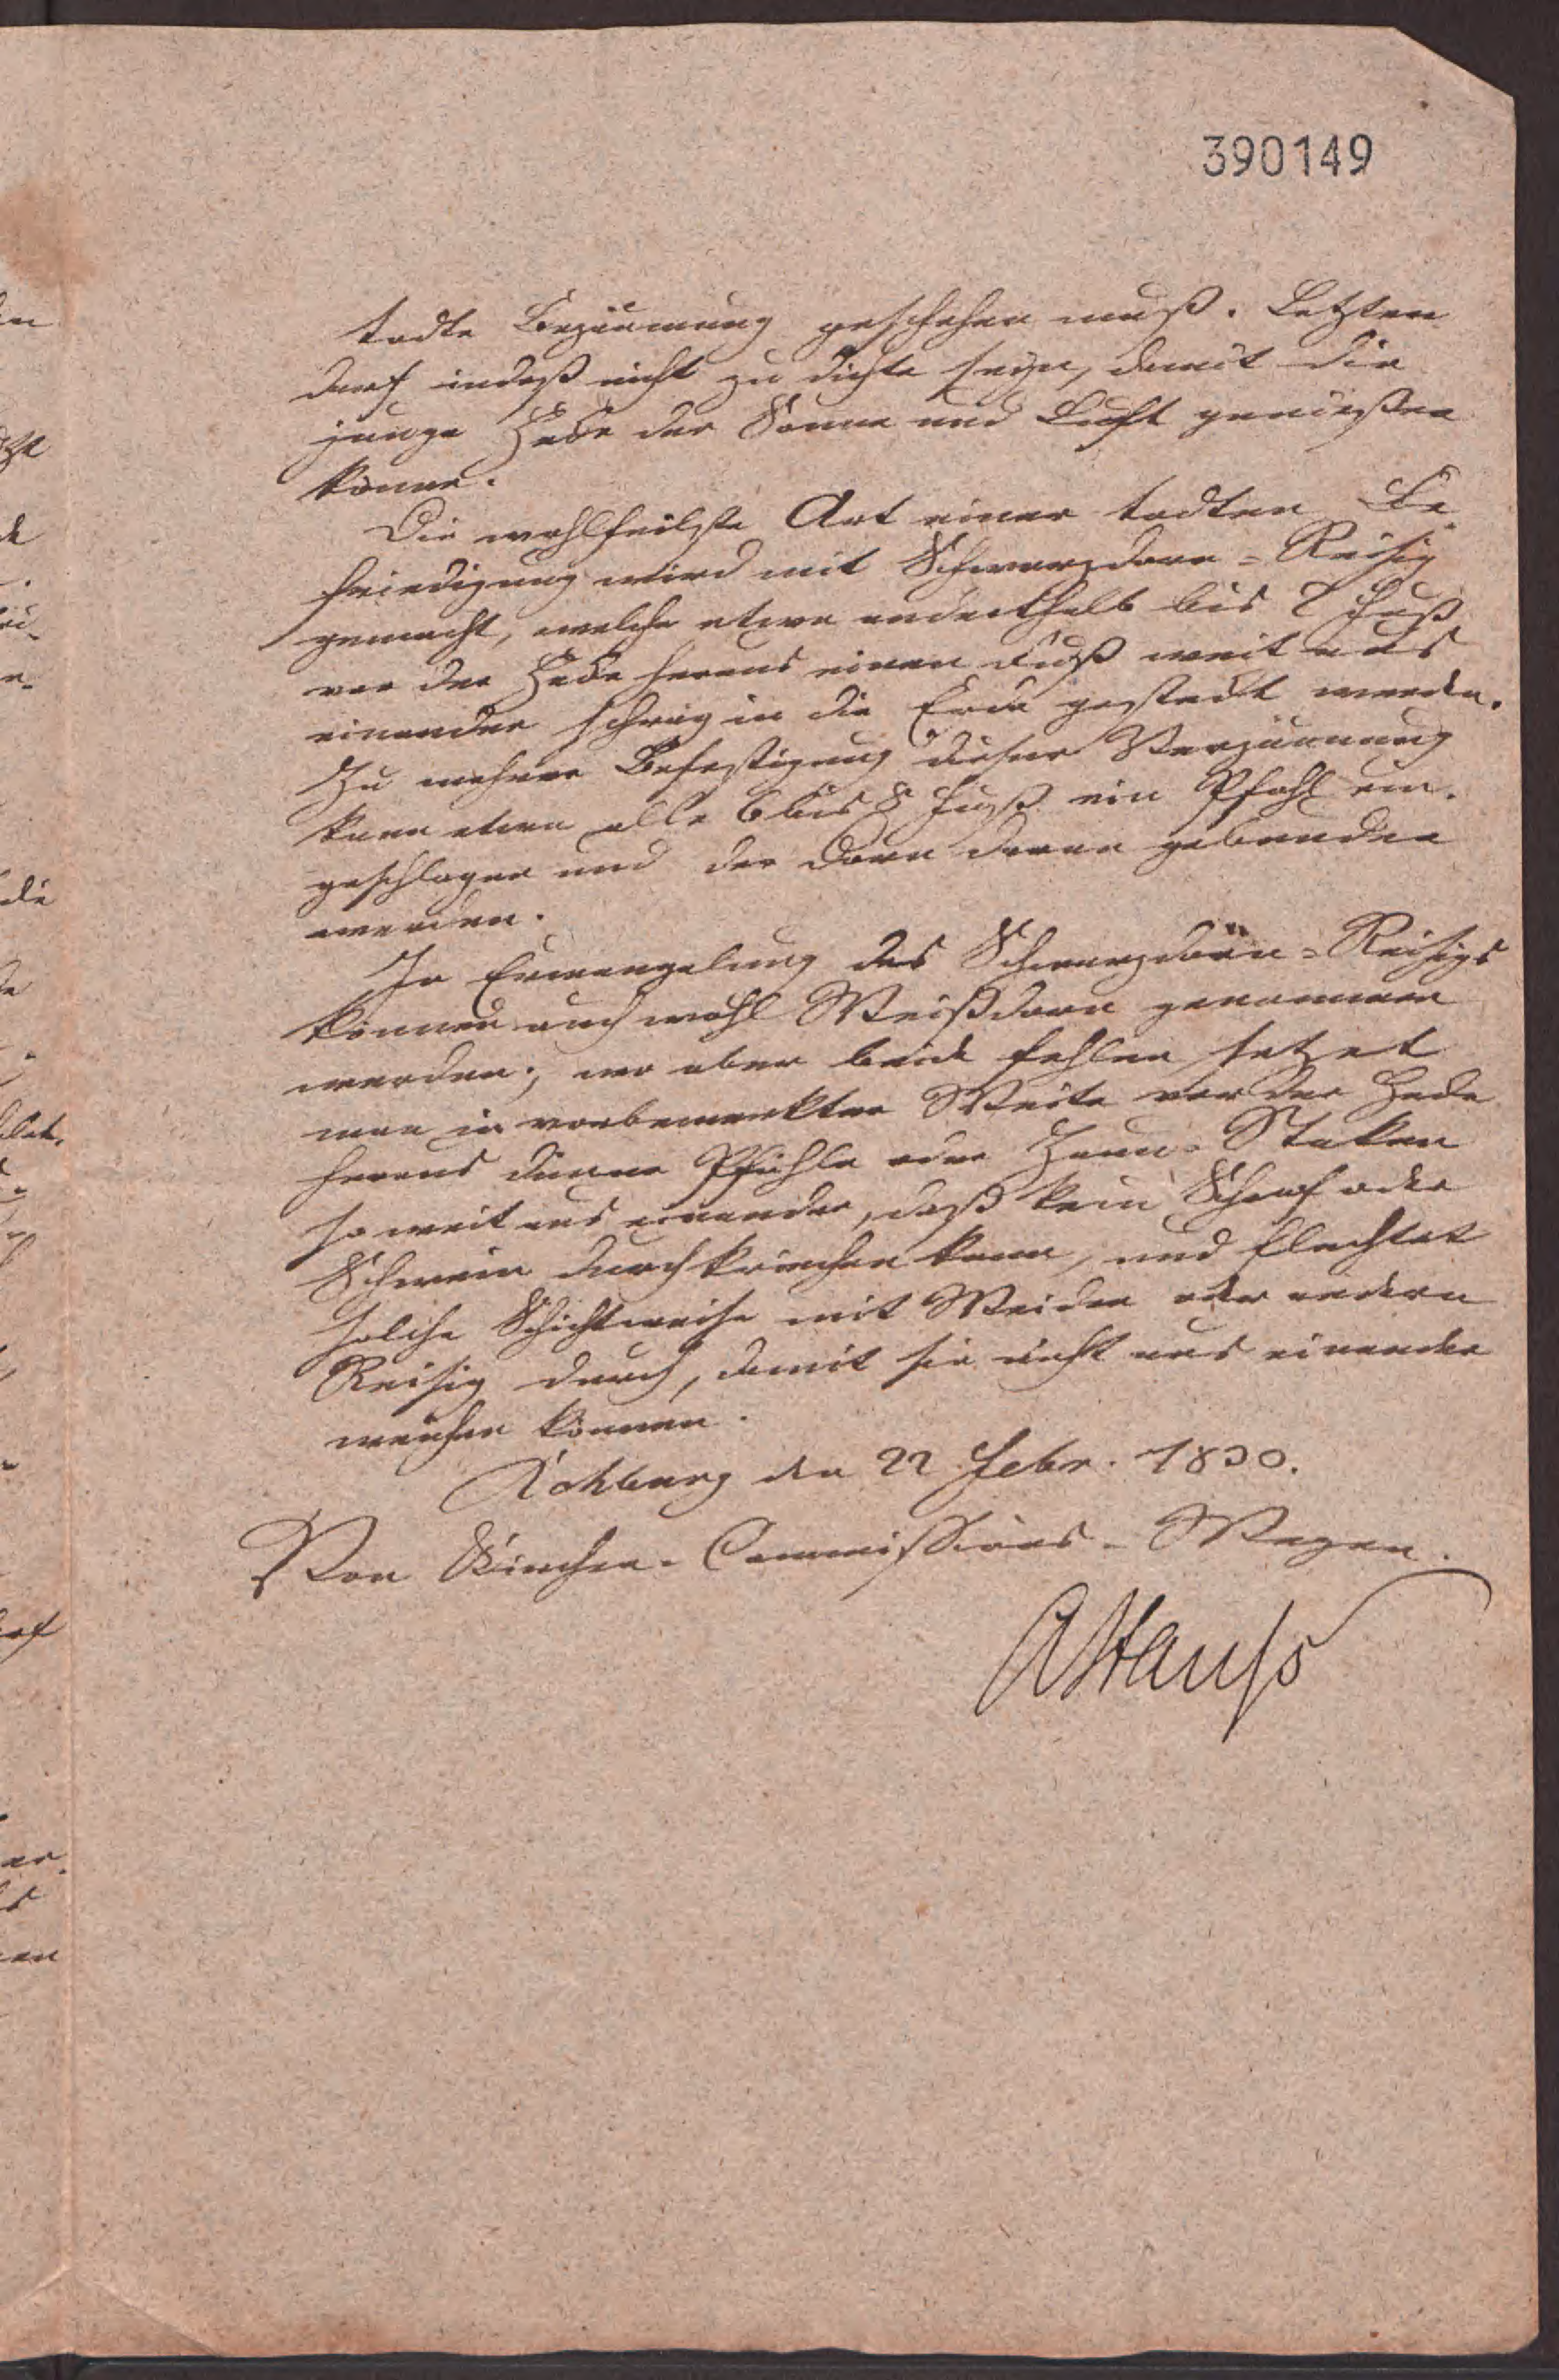 390149
todte Bezäumung geschehen muß. Letztere
darf indeß nicht zu dichte seyn, damit die
junge Hecke der Sonne und Luft genießen
könne.
Die wohlfeilste Art einer todten Be
friedigung wird mit Schwarzdorn-Reisig
gemacht, welche etwa anderthalb bis 2 Fuß
vor der Hecke heraus einen Fuß weit aus
einander schräg in die Erde gesteckt werden.
Zu mehrer Befestigung dieser Verzäunung
kann etwa alle 6 bis 8 Fuß ein Pfahl ein-
geschlagen und der Dorn daran gebunden
werden.
In Ermangelung des Schwarzdorn-Reisigs
können auch wohl Weißdorn genommen
werden; wo aber beide fehlen, setzet
man in vorbemerkter Weite vor der Hecke
heraus dünne Pfähle oder Zaun-Staken
so weit aus einander, daß kein Schaf oder
Schwein durchkriechen kann, und flechtet
solche Schichtweise mit Weiden oder andern
Reisig durch, damit sie nicht aus einander
weichen können.
den 22 Febr. 1830.
Von Kirchen-Commissions-Wegen.